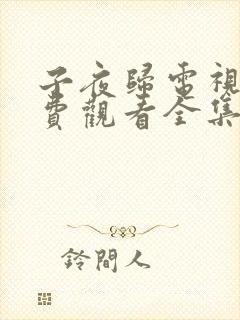 子夜歸電視
費觀看全集
鈴間人